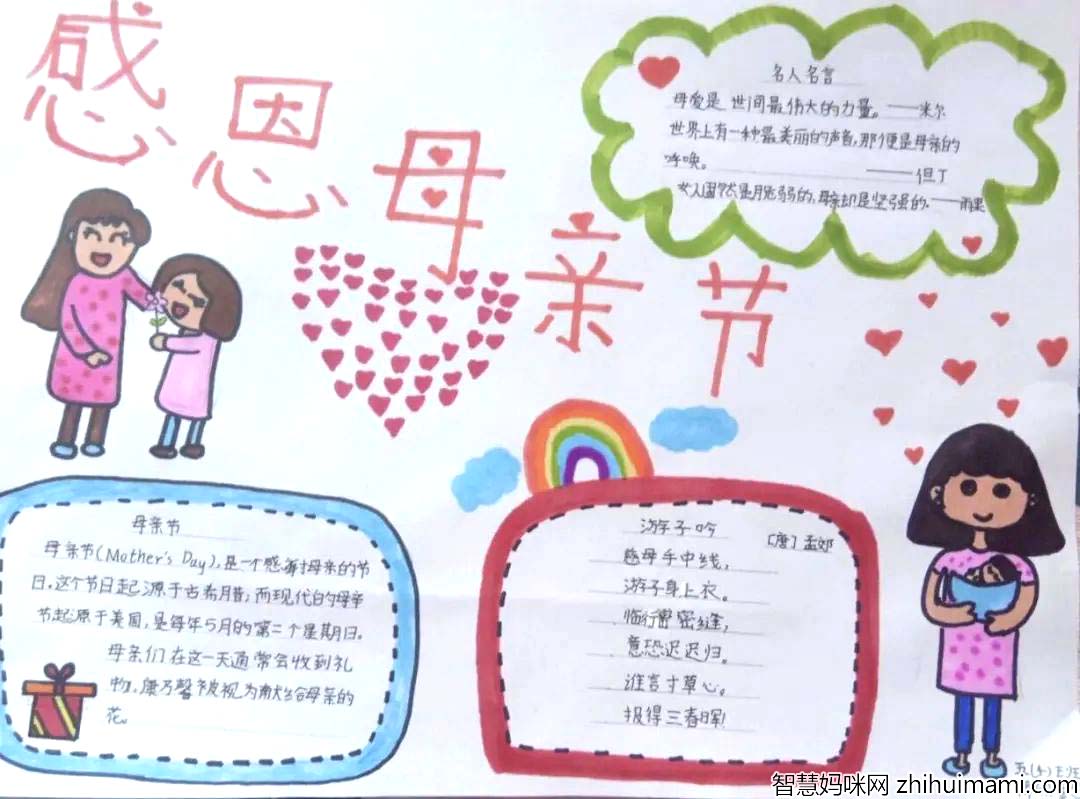 感恩母亲节
名人名言
母爱是世间最伟大的力量。——米尔
世界上有一种最美丽的声音,那便是母亲的
呼唤。——但丁
女人固然是脆弱的,母亲却是坚强的.——雨果
母亲节
母亲节(Mother's Day),是一个感谢母亲的节
日。这个节日起源于古希腊;而现代的母亲
节起源于美国,是每年5月的第二个星期日。
母亲们在这一天通常会收到礼
物,康乃馨被视为献给母亲的
花。
游子吟
[唐]孟郊
慈母手中线,
游子身上衣。
临行密密缝,
意恐迟迟归。
谁言寸草心。
报得三春晖!
智慧妈咪网 zhihuimami.com